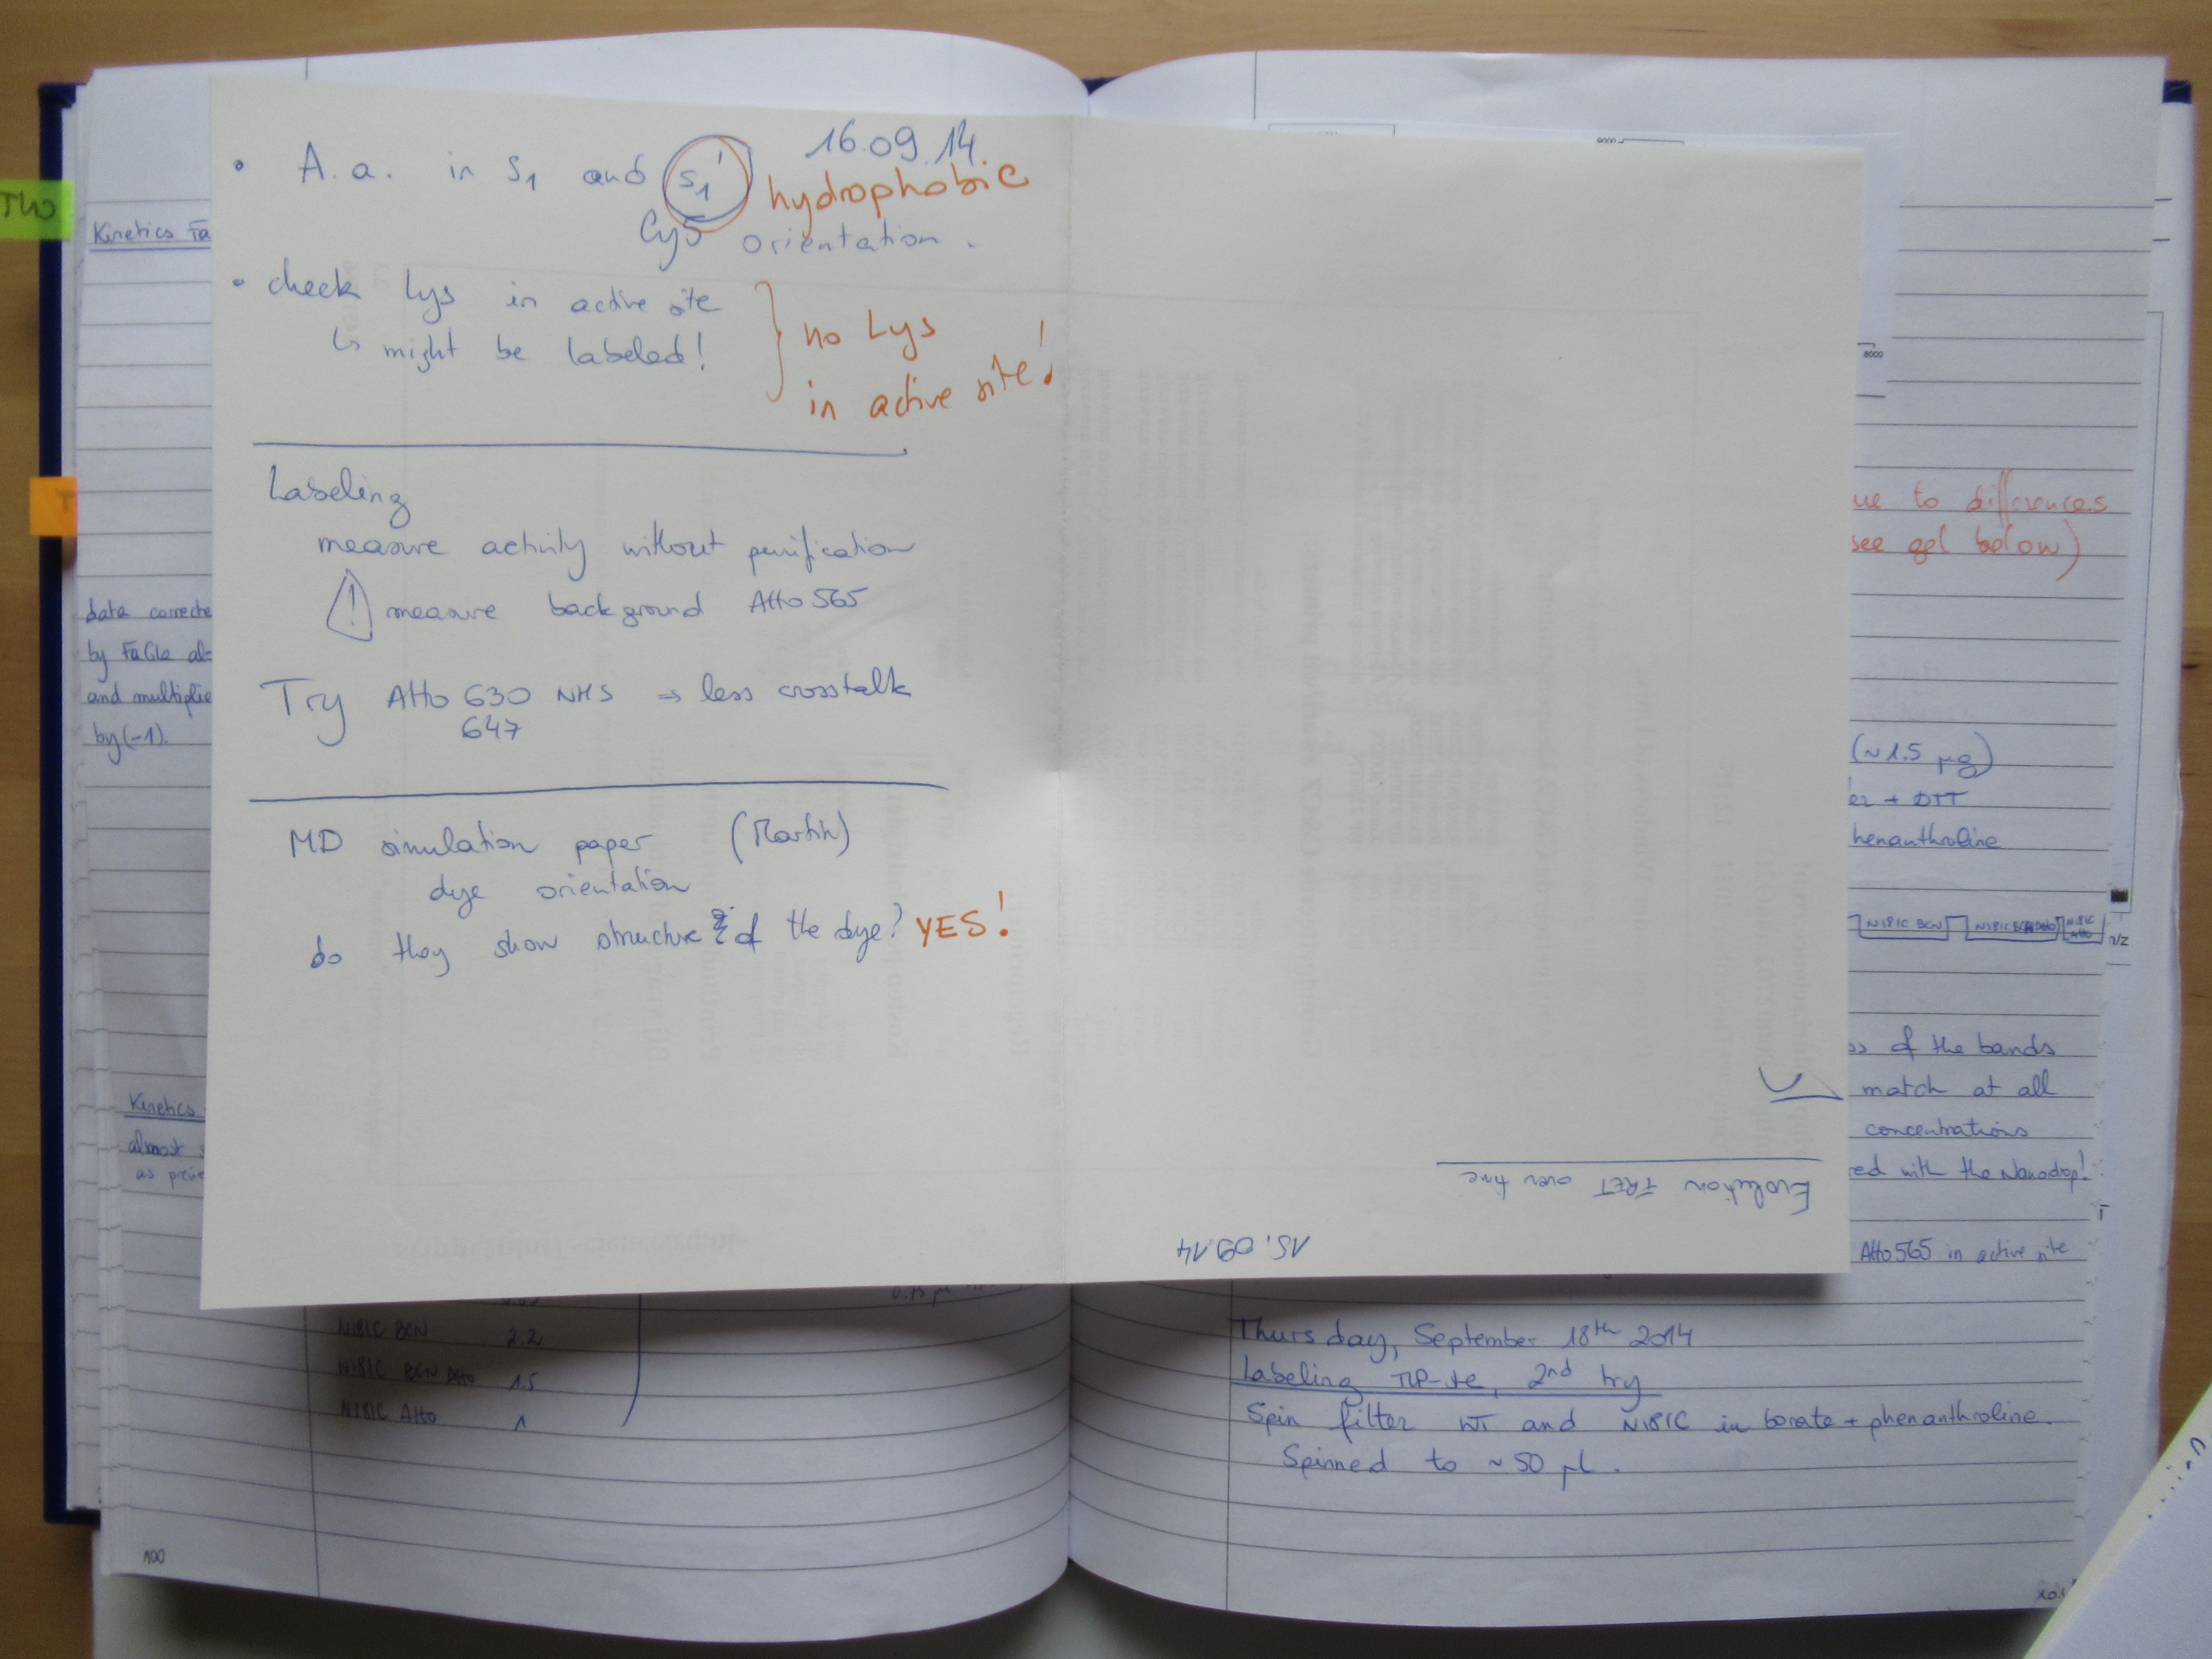 16.09.14.
• A.a. in S1 and S1' hydrophobic
Cy5 orientation.
• check Lys in active site
↳ might be labeled!
no Lys
in active site!
Labeling
measure activity without purification
! measure background Atto 565
Try Atto 630 NHS ⇒ less crosstalk
647
MD simulation paper (Martin)
dye orientation
do they show structure of the dye? YES!
15.09.14
Evolution FRET over time
Kinetics Fa
data correcte
by FaGla al
and multiplie
by (-1).
Kinetics
almost s
as previo
N181C BCN 2.2
N181C BCN Atto 1.5
N181C Atto 1
100
9000
8000
ue to differences
see gel below)
(~1.5 µg)
er + DTT
henanthroline
N181C BCN
N181C BCN Atto
N181C Atto
m/z
ss of the bands
match at all
concentrations
red with the Nanodrop!
Atto565 in active site
Thursday, September 18th 2014
Labeling TLP-ste, 2nd try
Spin filter WT and N181C in borate + phenanthroline.
Spinned to ~ 50 µL.